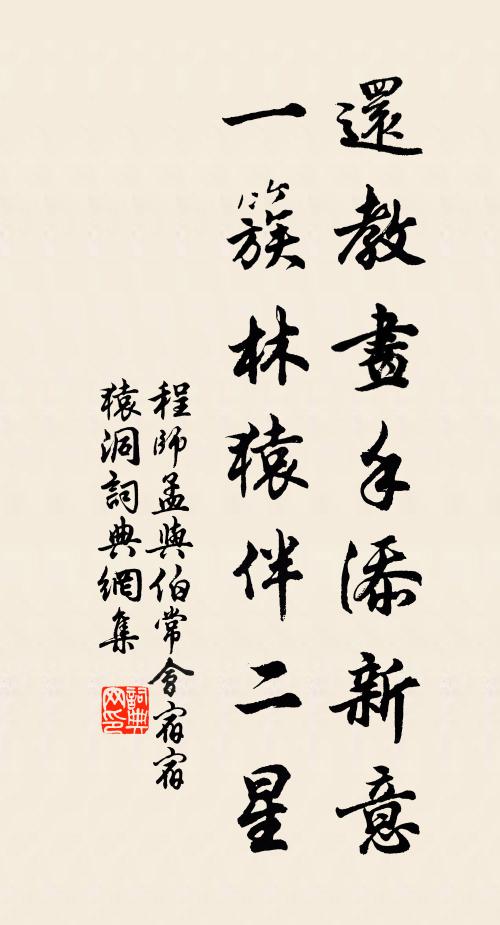 還教畫手添新意
一簇林猿伴二星
程師孟與伯常會宿宿
猿洞詞典網集
詞典網印